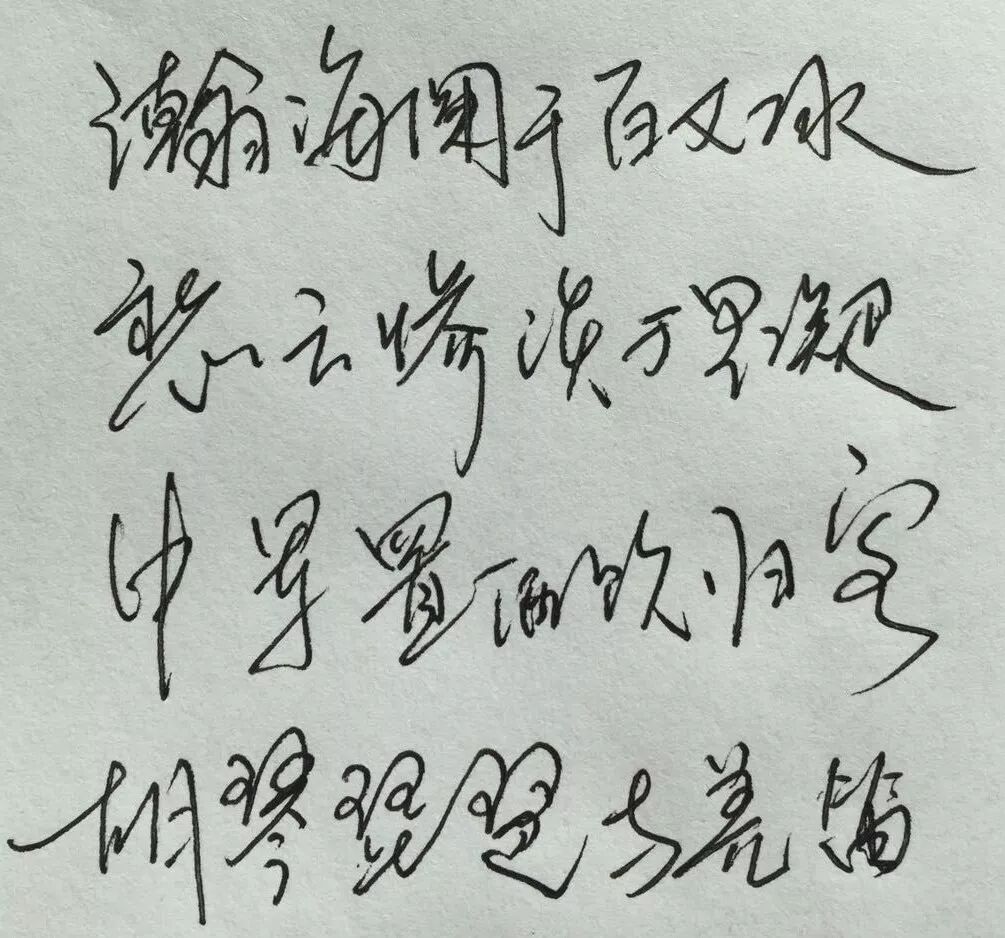 瀚海阑干百丈冰
愁云惨淡万里凝
中军置酒饮归客
胡琴琵琶与羌笛